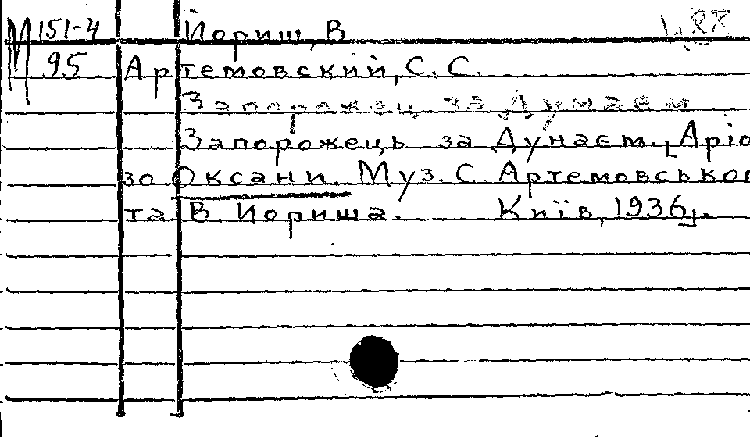 М 151-4 Йориш, В
95 Артемовский, С. С.
Запорожец за Дунаем
Запорожець за Дунаєм. [Аріо
зо Оксани. Муз. С. Артемовськог
та В. Йориша. Київ, 1936].